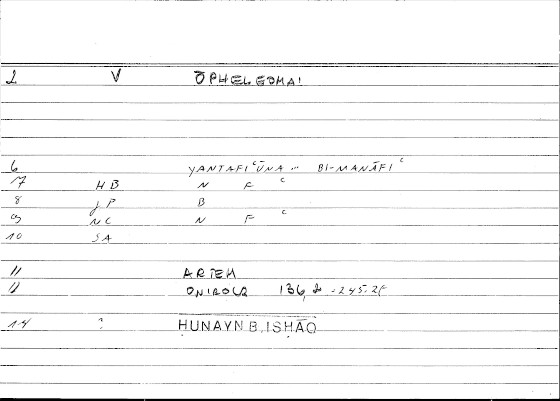 2 V ŌPHELEOMAI
6 YANTAFIʿŪNA .. BI-MANĀFIʿ
7 HB N F ʿ
8 JP B
9 NC N F ʿ
10 SA
11 ARTEM
11 ONIROCR 136, 2 = 245.2f
14 ? ḤUNAYN B. ISḤĀQ